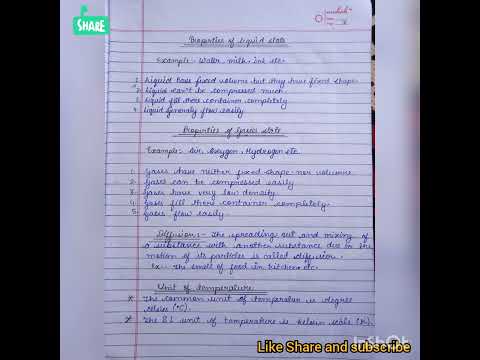 SHARE
Properties of liquid state
Example:- Water, milk, ink etc.
1. Liquid have fixed volume but they have fixed shape.
2. Liquid can't be compressed much.
3. Liquid fill there container completely
4. Liquid generaly flow easily
Properties of Gases state
Example:- Air, Oxygen, Hydrogen etc.
1. Gases have neither fixed shape nor volume.
2. Gases can be compressed easily
3. Gases have very low density.
4. Gases fill there container completely.
5. Gases flow easily.
Diffusion:- The spreading out and mixing of
a substance with another substance due to the
motion of its particles is called diffusion.
Ex:- The smell of food in kitchen etc.
Unit of temperature
* The common unit of temperatur is degree
celsius (°C).
* The S.I unit of temperature is kelvin scale (K).
Like Share and subscribe